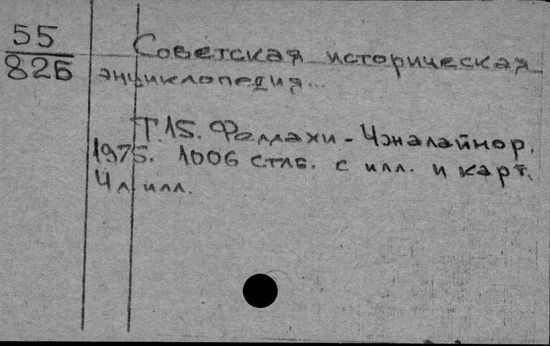 55
82Б
Советская историческая
энциклопедия...
Т. 15. Феллахи - Чжалайнор.
1975. 1006 стлб. с илл. и карт.
4 л илл.